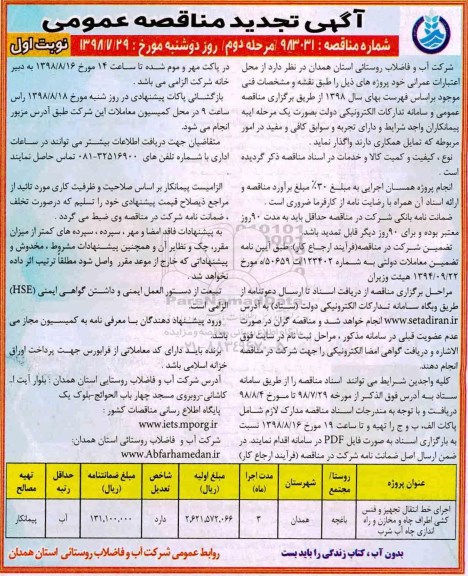 آگهی تجدید مناقصه عمومی
شماره مناقصه : ۹۸۳۰۳۱ (مرحله دوم) روز دوشنبه مورخ : ۱۳۹۸/۷/۲۹
نوبت اول
شرکت آب و فاضلاب روستائی استان همدان در نظر دارد از محل
اعتبارات عمرانی خود پروژه های ذیل را طبق نقشه و مشخصات فنی
موجود براساس فهرست بهای سال ۱۳۹۸ از طریق برگزاری مناقصه
عمومی و سامانه تدارکات الکترونیکی دولت بصورت یک مرحله ای به
پیمانکاران واجد شرایط و دارای تجربه و سوابق کافی و مفید در امور
مربوطه که تمایل همکاری دارند واگذار نماید .
نوع ، کیفیت و کمیت کالا و خدمات در اسناد مناقصه ذکر گردیده
است .
انجام پروژه همسان اجرایی به مبلغ ۳۰٪ مبلغ برآورد مناقصه و
ارائه اسناد آن همراه با رضایت نامه از کارفرما ضروری است .
ضمانت نامه بانکی شرکت در مناقصه حداقل باید به مدت ۹۰ روز
معتبر بوده و برای ۹۰ روز دیگر قابل تمدید باشد .
تضمین شرکت در مناقصه (فرآیند ارجاع کار) طبق آیین نامه
تضمین معاملات دولتی به شماره ۱۲۳۴۰۲/ت۵۰۶۵۹ه مورخ
۱۳۹۴/۰۹/۲۲ هیئت وزیران
مراحل برگزاری مناقصه از دریافت اسناد تا ارسال دعوتنامه از
طریق وبگاه سامانه تدارکات الکترونیکی دولت (ستاد) به آدرس
www.setadiran.ir انجام خواهد شد و مناقصه گران در صورت
عدم عضویت قبلی در سامانه مذکور ، مراحل ثبت نام در سایت فوق
الاشاره و دریافت گواهی امضا الکترونیکی را جهت شرکت در مناقصه
انجام دهند.
کلیه واجدین شرایط می توانند اسناد مناقصه را از طریق سامانه
ستاد به آدرس فوق الذکر از مورخه ۹۸/۷/۲۹ تا مورخ ۹۸/۸/۴
دریافت و با توجه به مندرجات اسناد مناقصه مدارک لازم شامل
پاکات الف، ب و ج را تهیه و تا ساعت ۱۹ مورخ ۱۳۹۸/۸/۱۶ نسبت
به بارگزاری اسناد به صورت فایل PDF در سامانه اقدام نمایند. در
ضمن ارسال اصل ضمانت نامه شرکت در مناقصه (فرآیند ارجاع کار)
در پاکت مهر و موم شده تا ساعت ۱۴ مورخ ۱۳۹۸/۸/۱۶ به دبیر
خانه شرکت الزامی می باشد .
بازگشائی پاکات پیشنهادی در روز شنبه مورخ ۱۳۹۸/۸/۱۸ راس
ساعت ۹ در محل کمیسیون معاملات این شرکت طبق آدرس مزبور
انجام می شود.
متقاضیان جهت دریافت اطلاعات بیشتر می توانند در ساعات
اداری با شماره تلفن های ۳۲۵۱۶۹۰۰-۰۸۱ تماس حاصل نمایند
.
الزامیست پیمانکار بر اساس صلاحیت و ظرفیت کاری مورد تائید از
مراجع ذیصلاح قیمت پیشنهادی خود را تسلیم که درصورت تخلف
، ضمانت نامه شرکت در مناقصه وی ضبط می گردد .
به پیشنهادات فاقد امضا و مهر ، سپرده ، سپرده های کمتر از میزان
مقرر، چک و نظایر آن و همچنین پیشنهادات مشروط ، مخدوش و
پیشنهاداتی که خارج از موعد مقرر واصل شود مطلقا ترتیب اثر داده
نخواهد شد .
تبعیت از دستور العمل ایمنی و داشتن گواهی ایمنی (HSE)
الزامی است
ورود پیشنهاد دهندگان با معرفی نامه به کمیسیون مجاز می
باشد .
برنده باید دارای کد معاملاتی از فرابورس جهت پرداخت اوراق
خزانه اسلامی باشد .
آدرس شرکت آب و فاضلاب روستایی استان همدان : بلوار آیت ا...
کاشانی-روبروی مسجد چهار باب الحوائج-بلوک یک
پایگاه اطلاع رسانی مناقصات کشور :
www.iets.mporg.ir
شرکت آب و فاضلاب روستائی استان همدان:
www.Abfarhamedan.ir
عنوان پروژه | روستا/مجتمع | شهرستان | مدت اجرا (ماه) | مبلغ اولیه (ریال) | شاخص تعدیل | مبلغ ضمانتنامه (ریال) | حداقل رتبه | تهیه مصالح
اجرای خط انتقال تجهیز و فنس کشی اطراف چاه و مخازن و راه اندازی چاه آب شرب | باغچه | همدان | ۳ | ۲،۶۲۱،۵۷۲،۰۶۶ | ندارد | ۱۳۱،۱۰۰،۰۰۰ | آب | پیمانکار
بدون آب ، کتاب زندگی را باید بست
روابط عمومی شرکت آب و فاضلاب روستائی استان همدان